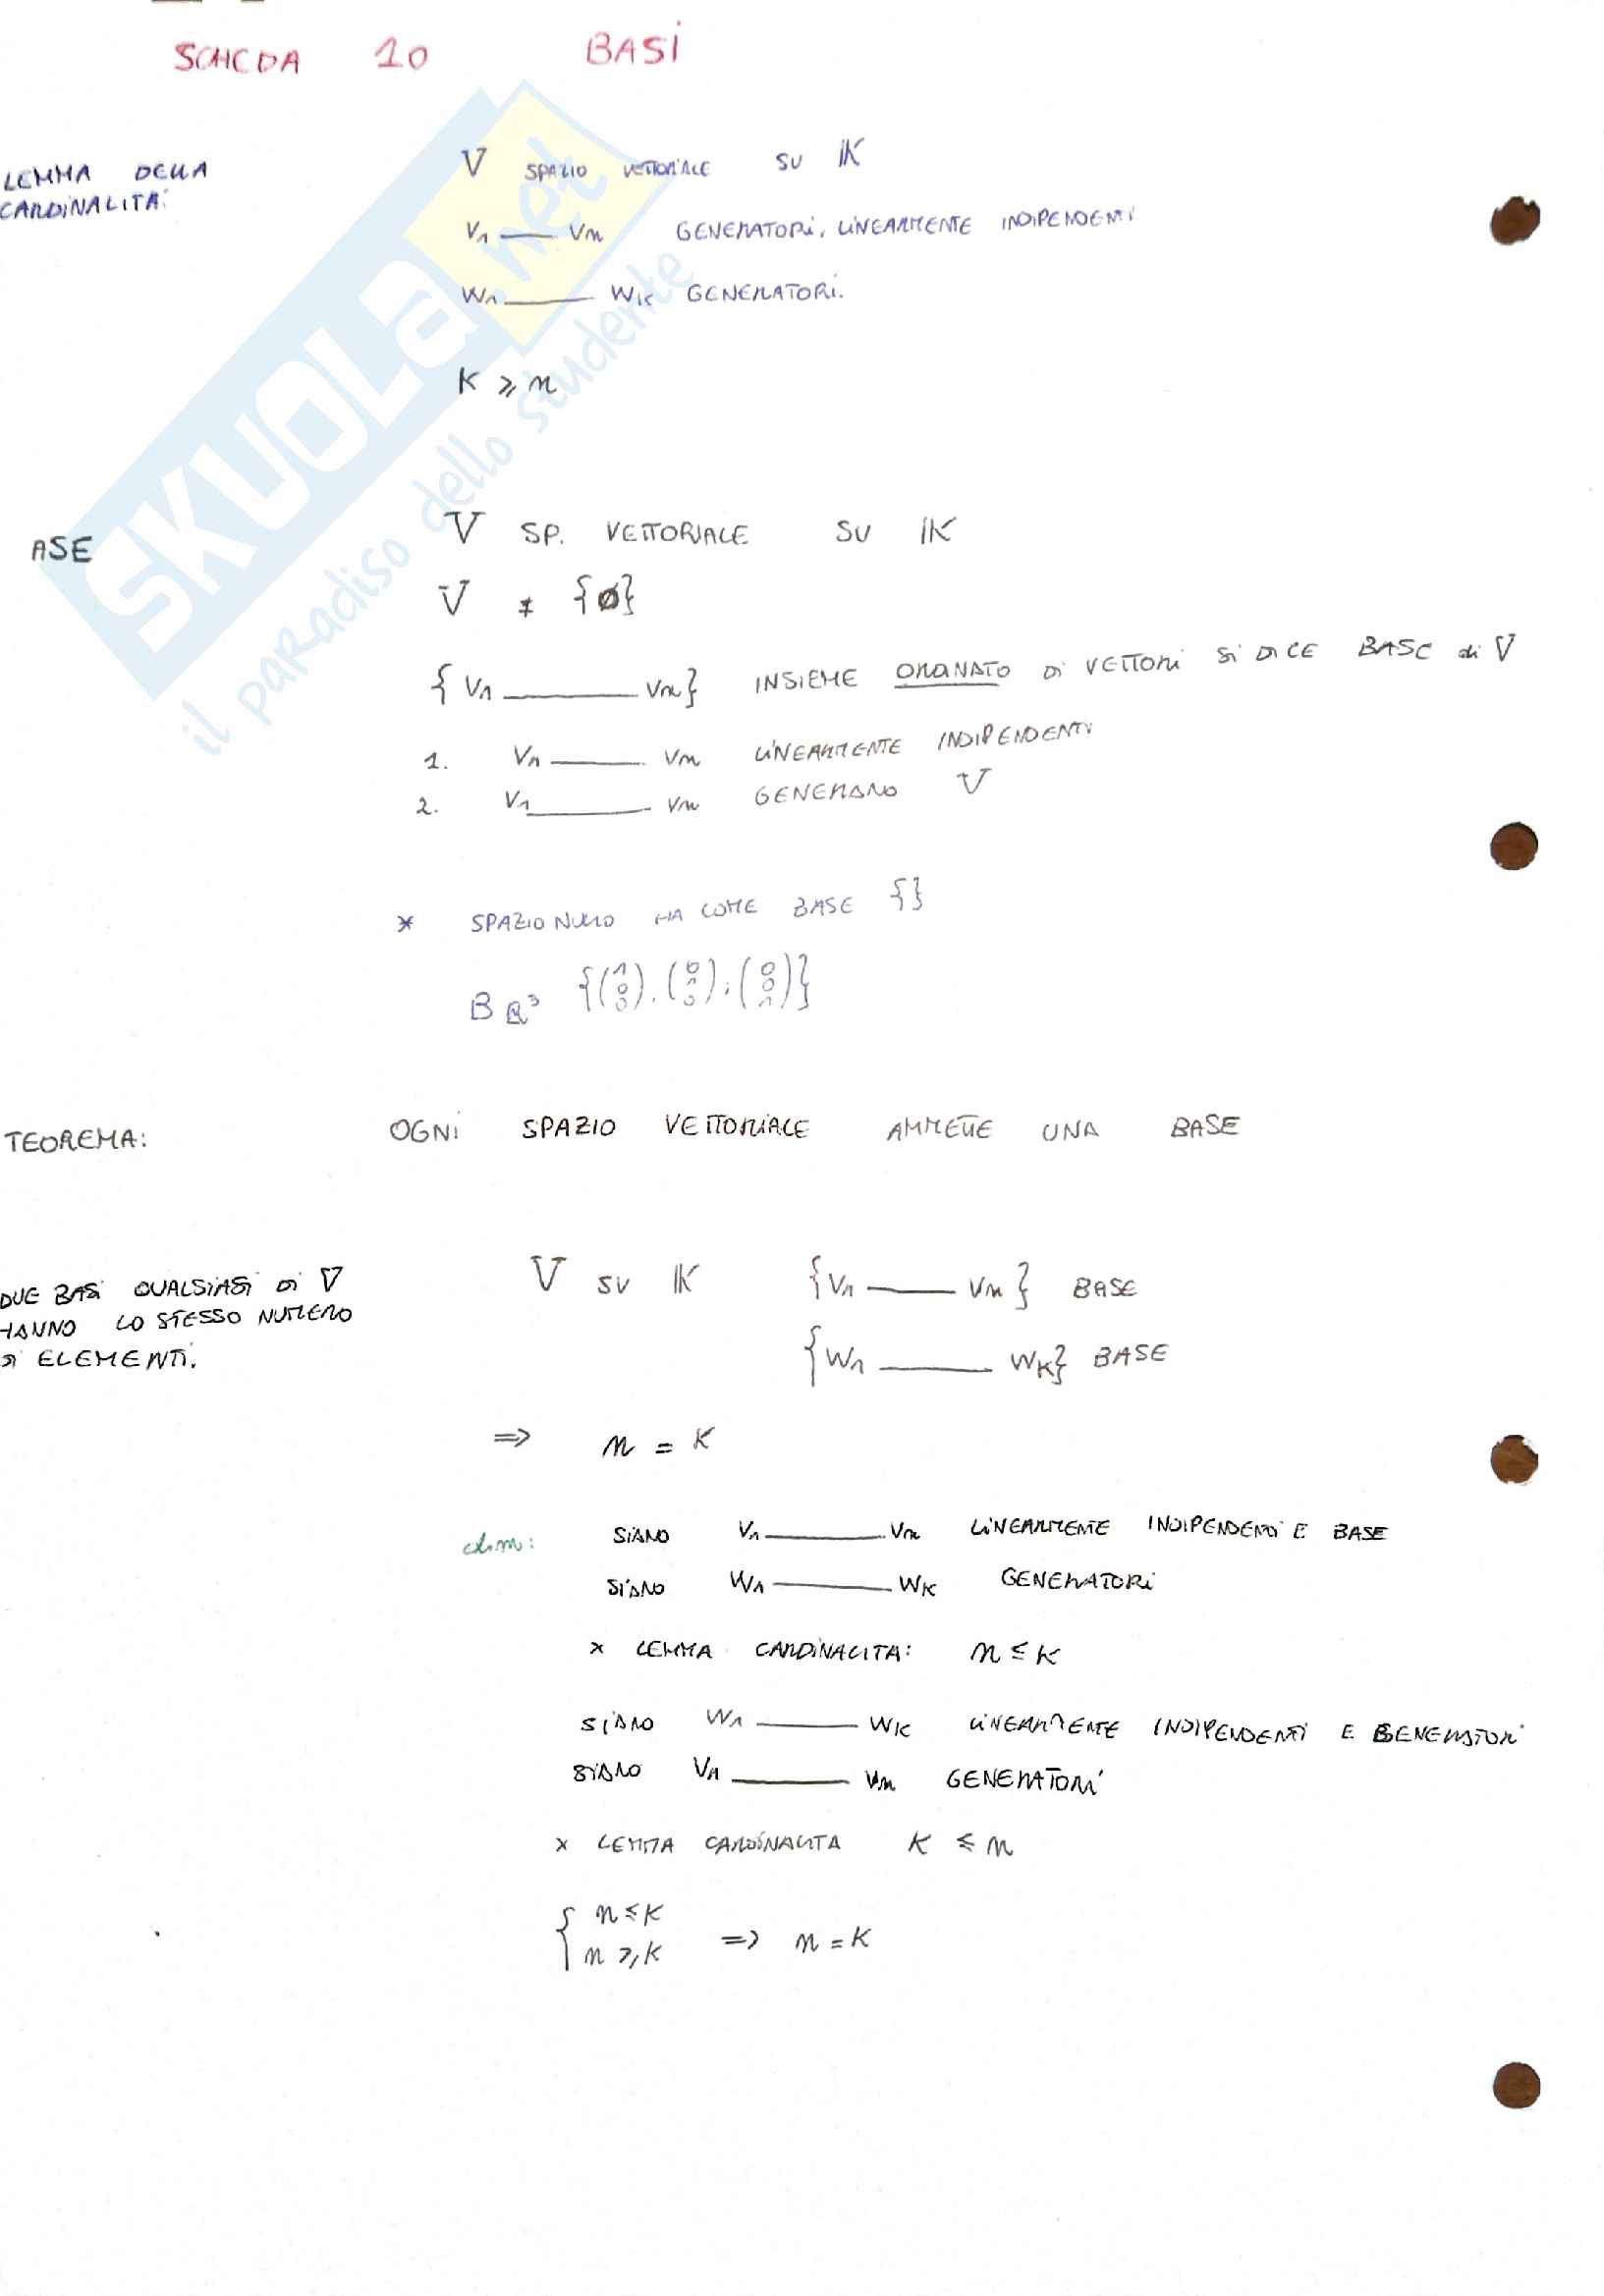 SCHEDA 10 BASI
LEMMA DELLA
CARDINALITA:
V SPAZIO VETTORIALE SU IK
V1 —— Vn GENERATORI, LINEARMENTE INDIPENDENTI
W1 —— WK GENERATORI.
K ≥ n
ASE
V SP. VETTORIALE SU IK
V ≠ {ø}
{ V1 —— Vn } INSIEME ORDINATO DI VETTORI SI DICE BASE di V
1. V1 —— Vn LINEARMENTE INDIPENDENTI
2. V1 —— Vn GENERANO V
* SPAZIO NULLO HA COME BASE {}
B R³ {(1 0 0), (0 1 0); (0 0 1)}
TEOREMA: OGNI SPAZIO VETTORIALE AMMETTE UNA BASE
DUE BASI QUALSIASI DI V
HANNO LO STESSO NUMERO
DI ELEMENTI.
V SU IK {V1 —— Vn} BASE
{W1 —— WK} BASE
=> n = K
dim: SIANO V1 —— Vn LINEARMENTE INDIPENDENTI E BASE
SIANO W1 —— WK GENERATORI
x LEMMA CARDINALITA: n ≤ K
SIANO W1 —— WK LINEARMENTE INDIPENDENTI E GENERATORI
SIANO V1 —— Vn GENERATORI
x LEMMA CARDINALITA K ≤ n
{ n ≤ K
n ≥ K => n = K
SKUOLA.net
il paradiso dello studente